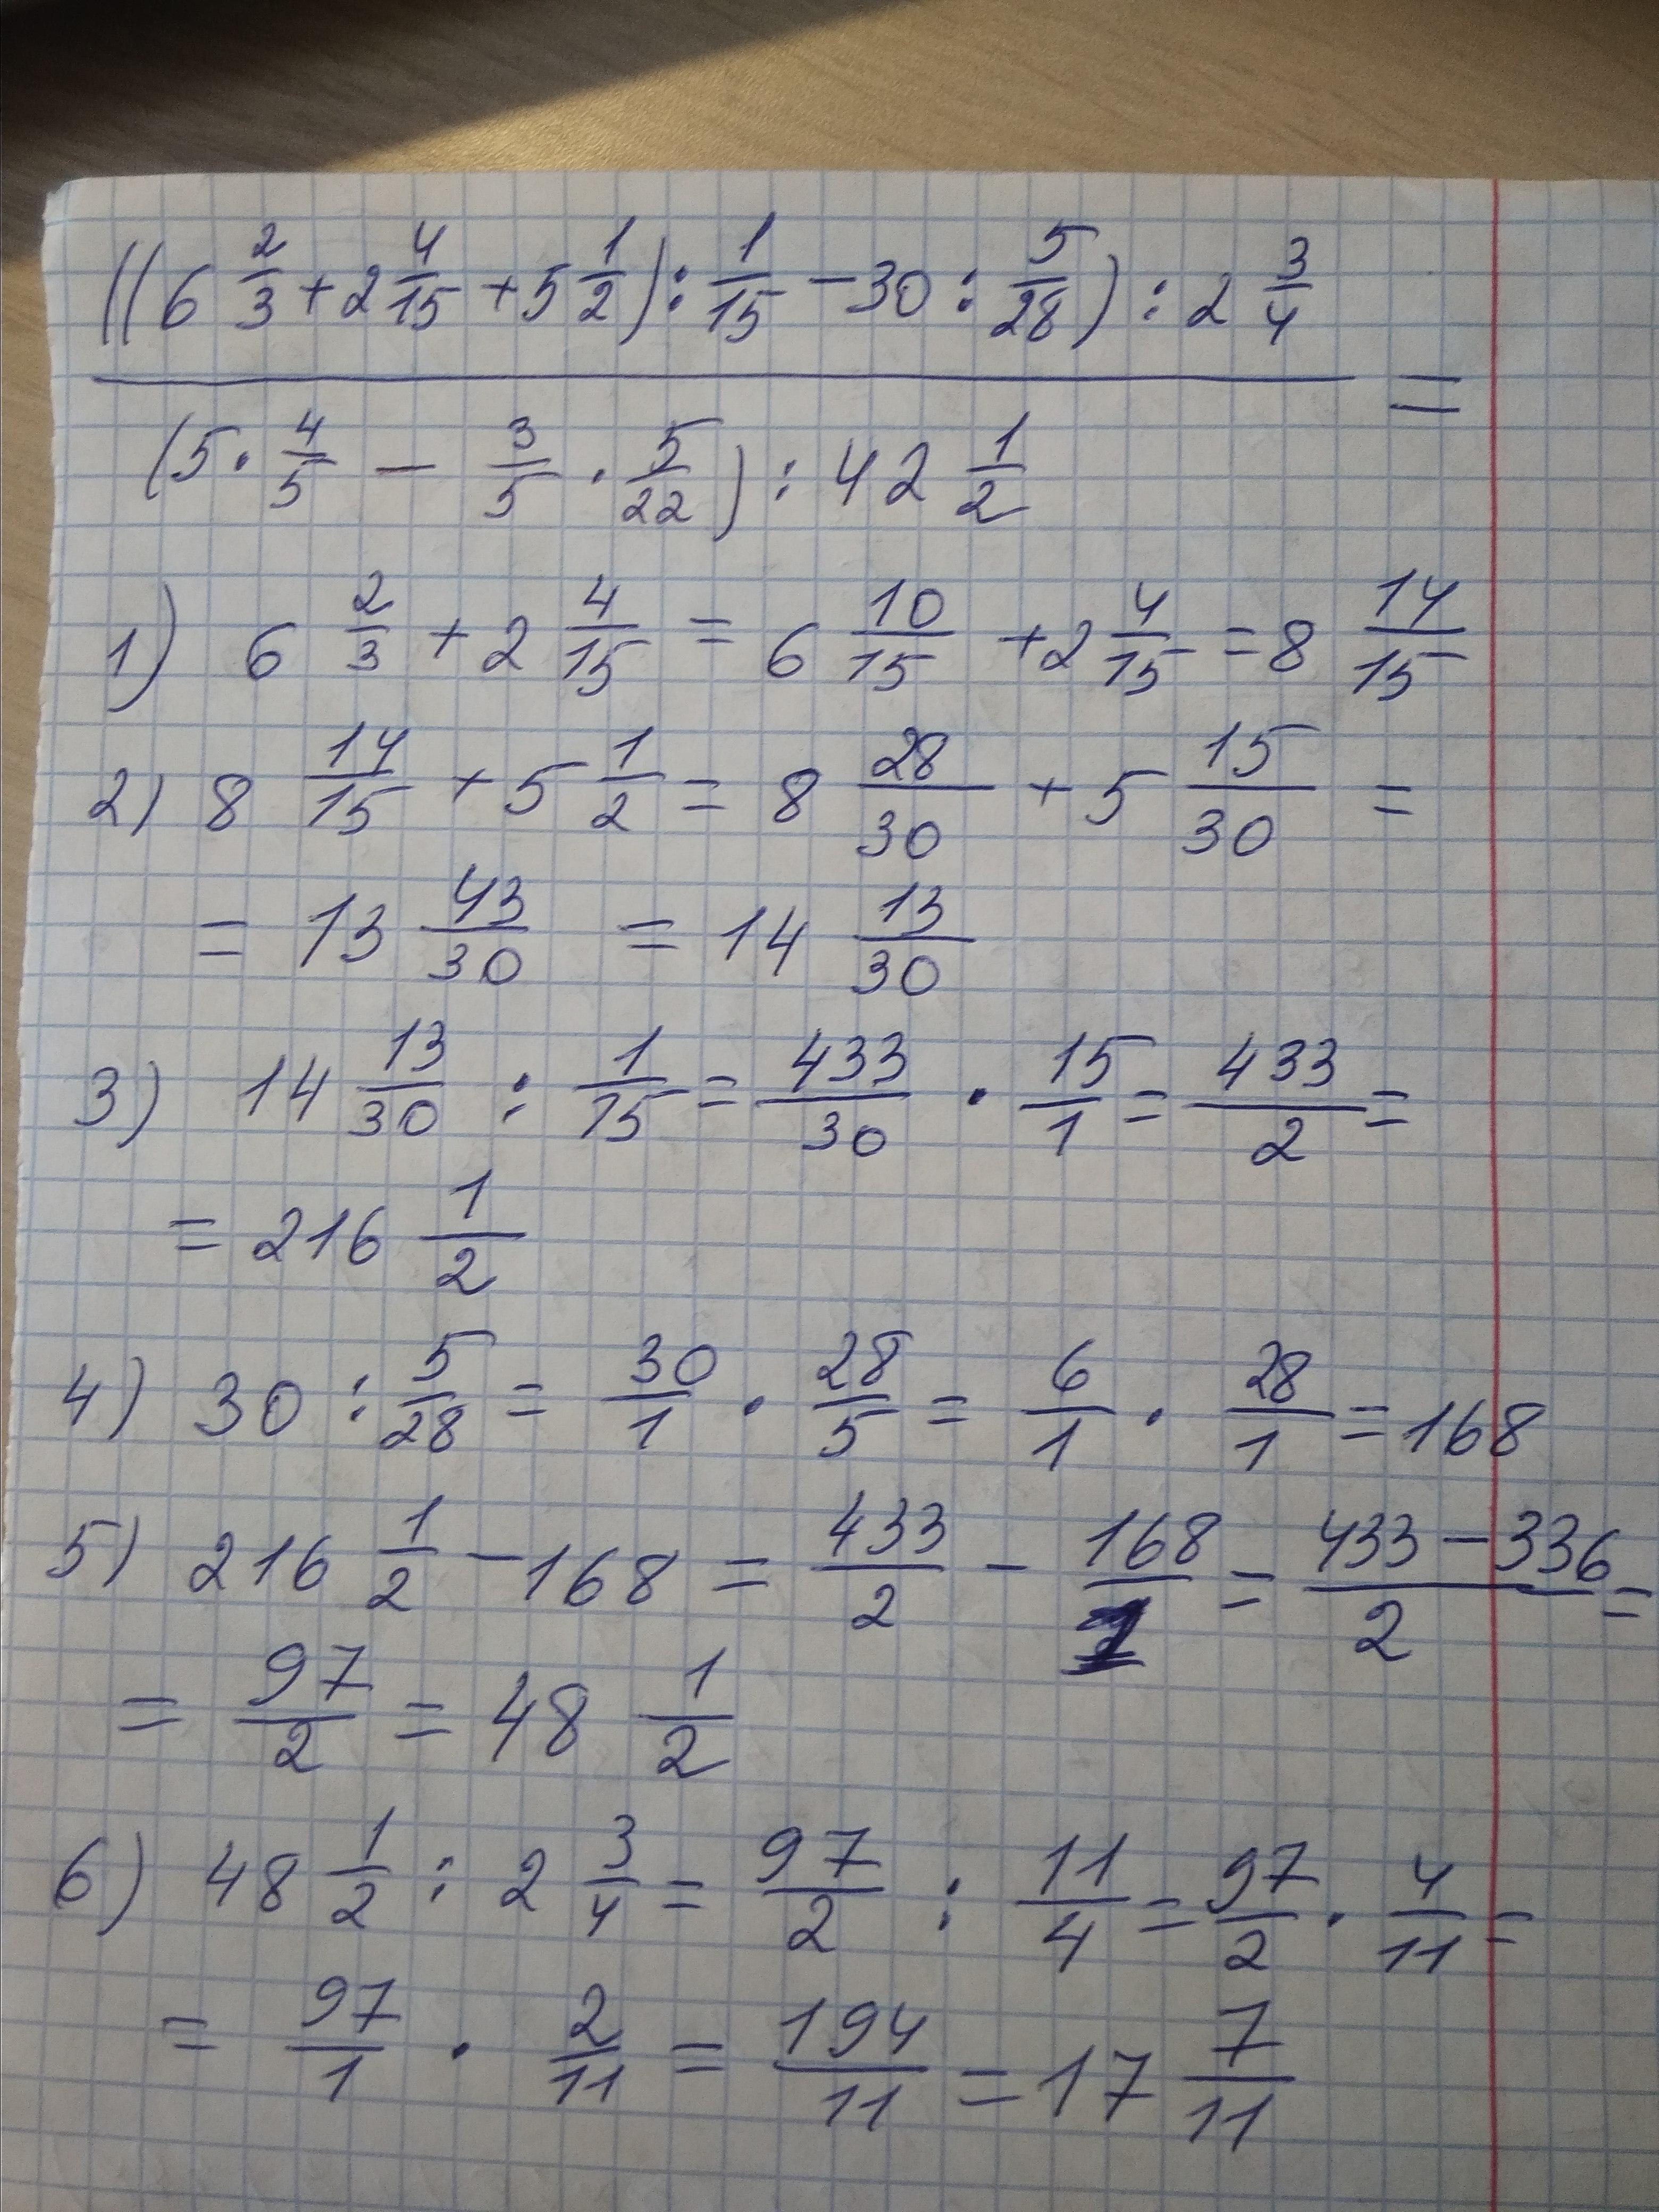 ((6 2/3 + 2 4/15 + 5 1/2) : 1/15 - 30 : 5/28) : 2 3/4 =
(5 · 4/5 - 3/5 · 5/22) : 42 1/2
1) 6 2/3 + 2 4/15 = 6 10/15 + 2 4/15 = 8 14/15
2) 8 14/15 + 5 1/2 = 8 28/30 + 5 15/30 =
= 13 43/30 = 14 13/30
3) 14 13/30 : 1/15 = 433/30 · 15/1 = 433/2 =
= 216 1/2
4) 30 : 5/28 = 30/1 · 28/5 = 6/1 · 28/1 = 168
5) 216 1/2 - 168 = 433/2 - 168/1 = 433 - 336/2 =
= 97/2 = 48 1/2
6) 48 1/2 : 2 3/4 = 97/2 : 11/4 = 97/2 · 4/11 =
= 97/1 · 2/11 = 194/11 = 17 7/11